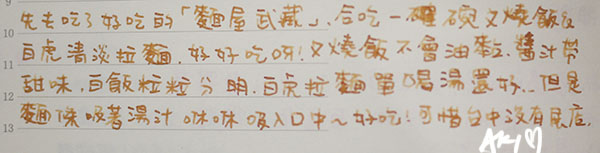 10 先去吃了好吃的「麵屋武藏」、合吃一碗叉燒飯&
11 白虎清淡拉麵,好好吃呀!叉燒飯不會油膩,醬汁帶
12 甜味,白飯粒粒分明,白虎拉麵單喝湯還好..但是
13 麵條吸著湯汁咻咻吸入口中~好吃!可惜台中沒有展店.
AKy♡